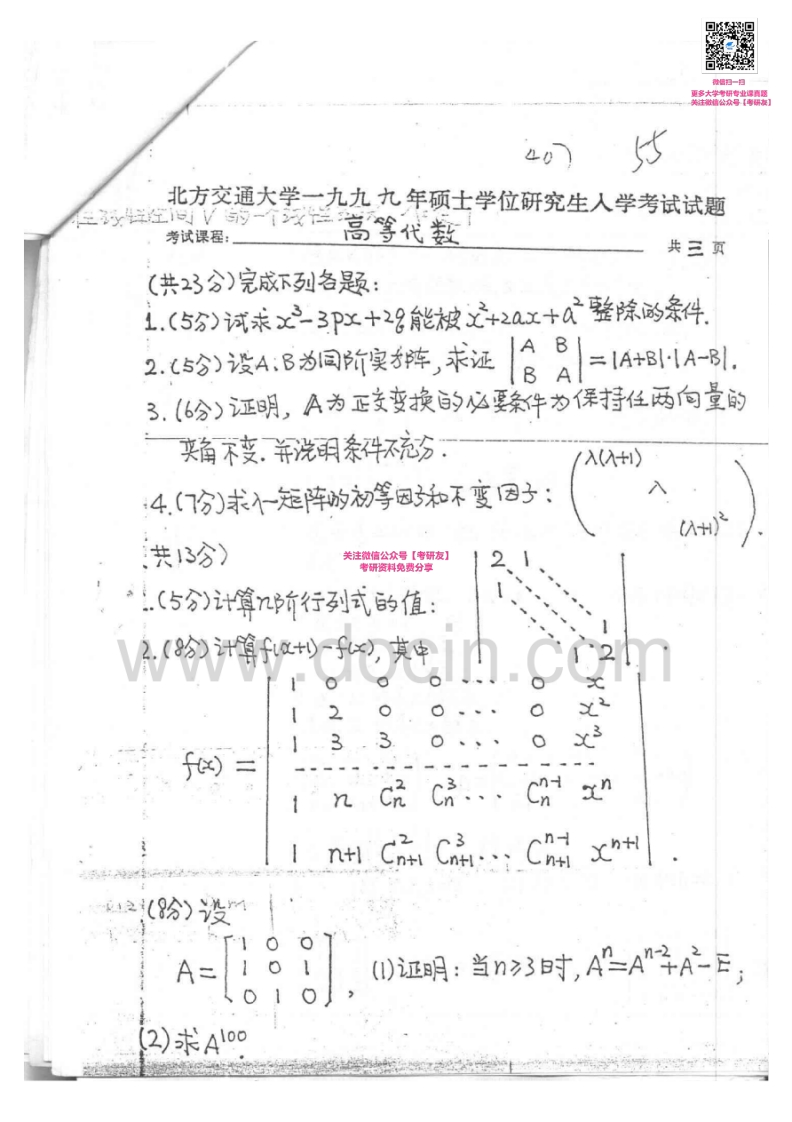 微信扫一扫
更多大学考研专业课真题
关注微信公众号【考研友】
407 55
北方交通大学一九九九年硕士学位研究生入学考试试题
考试课程: 高等代数
共三页
(共23分)完成下列各题:
1.(5分)试求x³-3px+2q能被x²+2ax+a²整除的条件.
2.(5分)设A、B为同阶实方阵,求证 |A B; B A| = |A+B|·|A-B|.
3.(6分)证明, A为正交变换的必要条件为保持任两向量的
夹角不变.并说明条件不充分.
4.(7分)求λ—矩阵的初等因子和不变因子: (λ(λ+1) λ (λ+1)²).
共13分)
关注微信公众号【考研友】
考研资料免费分享
1.(5分)计算n阶行列式的值: |2 1 1 1 1 2|.
2.(8分)计算f(x+1)-f(x),其中
www.docin.com
1 0 0 0 ··· 0 x
1 2 0 0 ··· 0 x²
1 3 3 0 ··· 0 x³
f(x) =
1 n Cn² Cn³ ··· Cnⁿ⁻¹ xⁿ
1 n+1 C²n+1 C³n+1 ··· Cⁿ⁻¹n+1 xⁿ⁺¹ .
(8分)设
1 0 0
A= 1 0 1 , (1)证明: 当n≥3时, Aⁿ=Aⁿ⁻²+A²-E;
0 1 0
(2)求A¹⁰⁰.